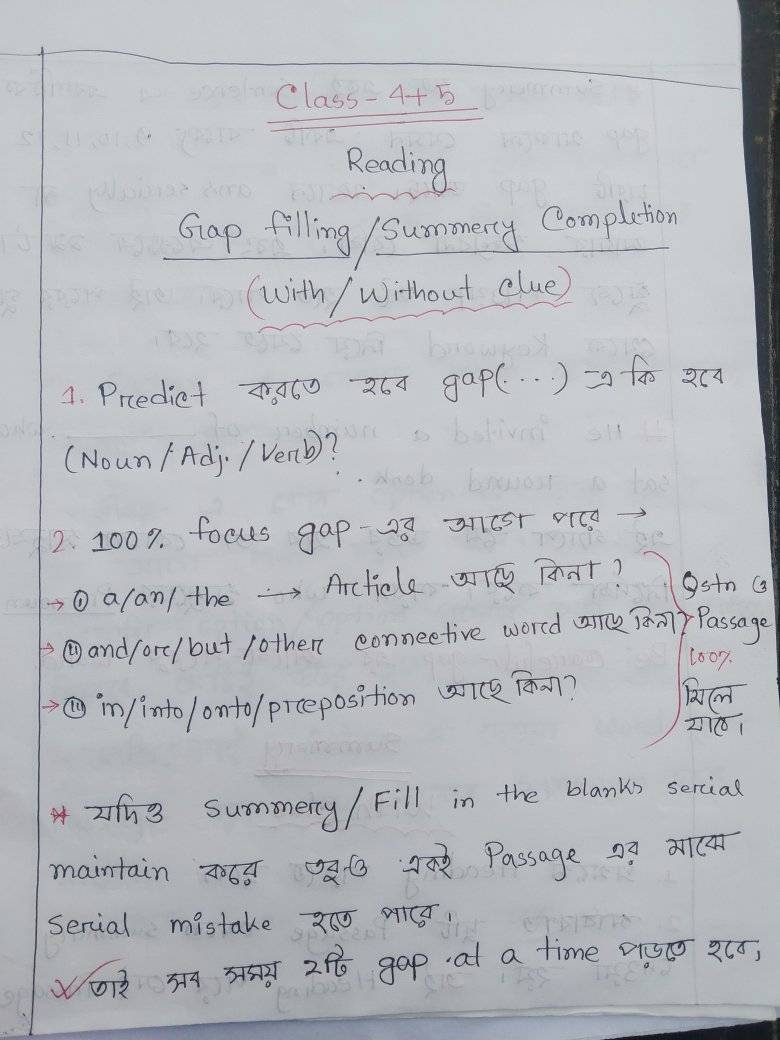 Class-4+5
Reading
Gap filling/Summery Completion
(With/Without Clue)
1. Predict করতে হবে gap(....) এ কি হবে
(Noun/Adj./Verb)?
2. 100% focus gap-এর আগে পরে →
→ ⓘ a/an/the → Article আছে কিনা?
→ ⓘⓘ and/or/but/other connective word আছে কিনা?
→ ⓘⓘⓘ in/into/onto/preposition আছে কিনা?
Qstn ও
Passage
100%
মিলে
যাবে।
* যদিও Summery/Fill in the blanks serial
maintain করে তবুও একই Passage এর মাঝে
Serial mistake হতে পারে।
* তাই সব সময় ২টি gap at a time পড়তে হবে,